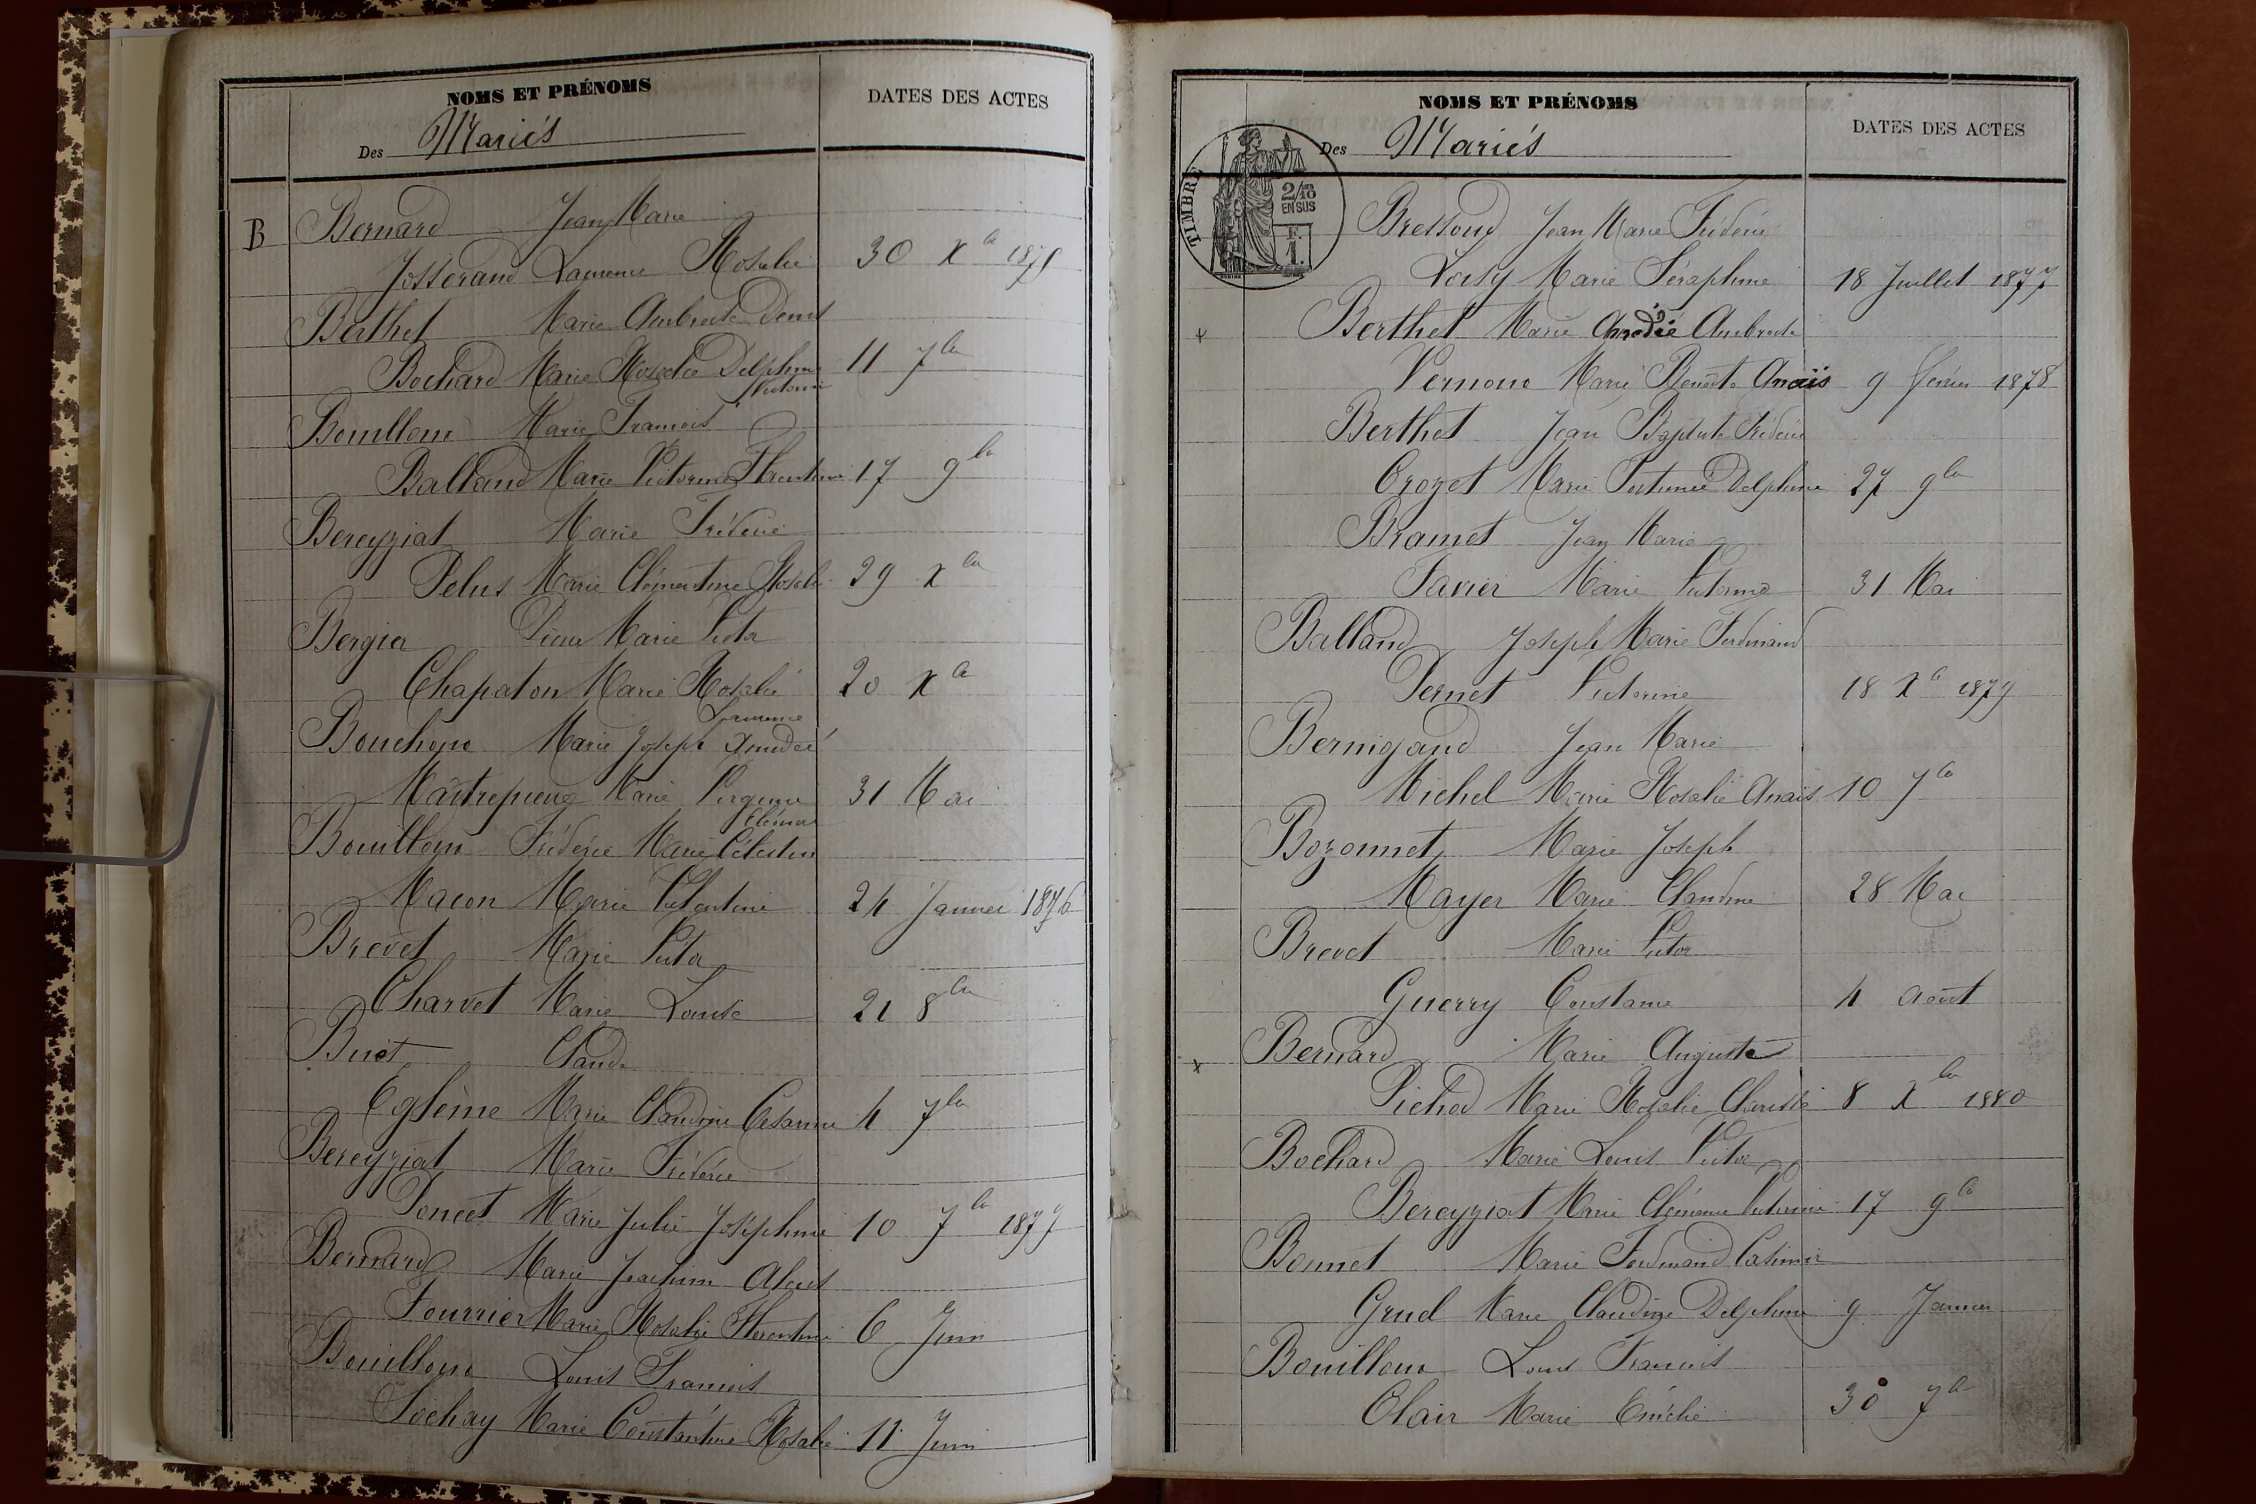 NOMS ET PRÉNOMS
Des Mariés
DATES DES ACTES
B Bernard Jean Marie
Josserand Laurence Rosalie 30 Xbre 1875
Berthet Marie Ambroise Denis
Bochard Marie Rosalie Delphine 11 7bre
Victorine
Bouilloux Marie François
Balland Marie Victorine Florentine 17 9bre
Bereyziat Marie Frédéric
Pelus Marie Clémentine Rosalie 29 Xbre
Bergier Pierre Marie Victor
Chapaton Marie Rosalie 20 Xbre
Laurence
Bouchoux Marie Joseph Amédée
Maîtrepierre Marie Virginie 31 Mai
Clémence
Bouilloux Frédéric Marie Célestin
Macon Marie Valentine 24 Janvier 1876
Brevet Marie Victor
Charvet Marie Louise 21 8bre
Buet Claude
Eglème Marie Claudine Césarine 4 7bre
Bereyziat Marie Frédéric
Poncet Marie Julie Joséphine 10 7bre 1877
Bernard Marie Joachim Alexis
Fourrier Marie Rosalie Florentine 6 Juin
Bouilloux Louis François
Sochay Marie Constantine Rosalie 11 Juin
NOMS ET PRÉNOMS
Des Mariés
DATES DES ACTES
TIMBRE
2/10
EN SUS
F.
1.
Bressoud Jean Marie Frédéric
Loisy Marie Séraphine 18 Juillet 1877
x Berthet Marie Amédée Ambroise
Vernoux Marie Benoite Anaïs 9 février 1878
Berthet Jean Baptiste Frédéric
Crozet Marie Fortunée Delphine 27 9bre
Bramet Jean Marie
Favier Marie Victorine 31 Mai
Balland Joseph Marie Ferdinand
Pernet Victorine 18 Xbre 1879
Bernigaud Jean Marie
Michel Marie Rosalie Anaïs 10 7bre
Bozonnet Marie Joseph
Mayer Marie Claudine 28 Mai
Brevet Marie Victor
Guerry Constance 4 août
x Bernard Marie Auguste
Pichod Marie Rosalie Clarisse 8 Xbre 1880
Bochard Marie Louis Victor
Bereyziat Marie Clémence Victorine 17 9bre
Bonnet Marie Ferdinand Casimir
Grud Marie Claudine Delphine 9 Janvier
Bouilloux Louis François
Clair Marie Emélie 30 7bre